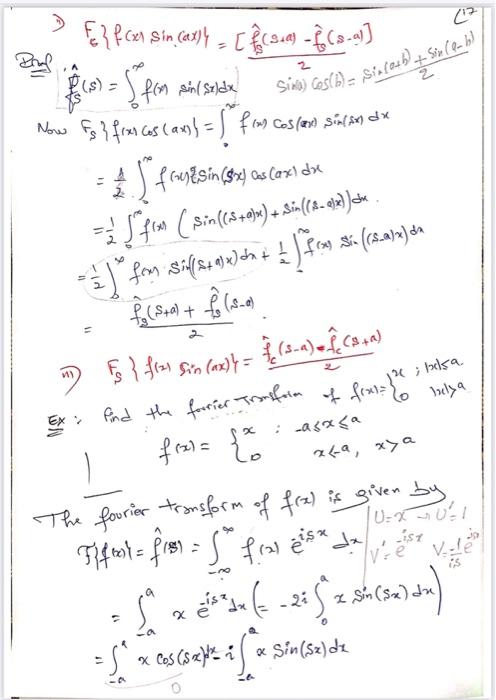 (12
ii) F_c {f(x) sin(ax)} = [f̂_s(s+a) - f̂_s(s-a)] / 2
Proof f̂_s(s) = ∫_0^∞ f(x) sin(sx) dx
sin(a) cos(b) = (sin(a+b) + sin(a-b)) / 2
Now F_s {f(x) cos(ax)} = ∫_0^∞ f(x) cos(ax) sin(sx) dx
= 1/2 ∫_0^∞ f(x) 2 sin(sx) cos(ax) dx
= 1/2 ∫_0^∞ f(x) (sin((s+a)x) + sin((s-a)x)) dx.
= 1/2 ∫_0^∞ f(x) sin((s+a)x) dx + 1/2 ∫_0^∞ f(x) sin((s-a)x) dx
= (f̂_s(s+a) + f̂_s(s-a)) / 2
iii) F_s {f(x) sin(ax)} = (f̂_c(s-a) - f̂_c(s+a)) / 2
Ex: find the fourier transform of f(x) = { x ; |x|≤a
0 |x|>a
f(x) = { x : -a≤x≤a
0 x<-a, x>a
The fourier transform of f(x) is given by
F{f(x)} = f̂(s) = ∫_{-∞}^∞ f(x) e^{-isx} dx
U=x → U'=1
V'=e^{-isx} V=-1/is e^{-isx}
= ∫_{-a}^a x e^{-isx} dx (= -2i ∫_0^a x sin(sx) dx)
= ∫_{-a}^a x cos(sx) dx - i ∫_{-a}^a x sin(sx) dx
0